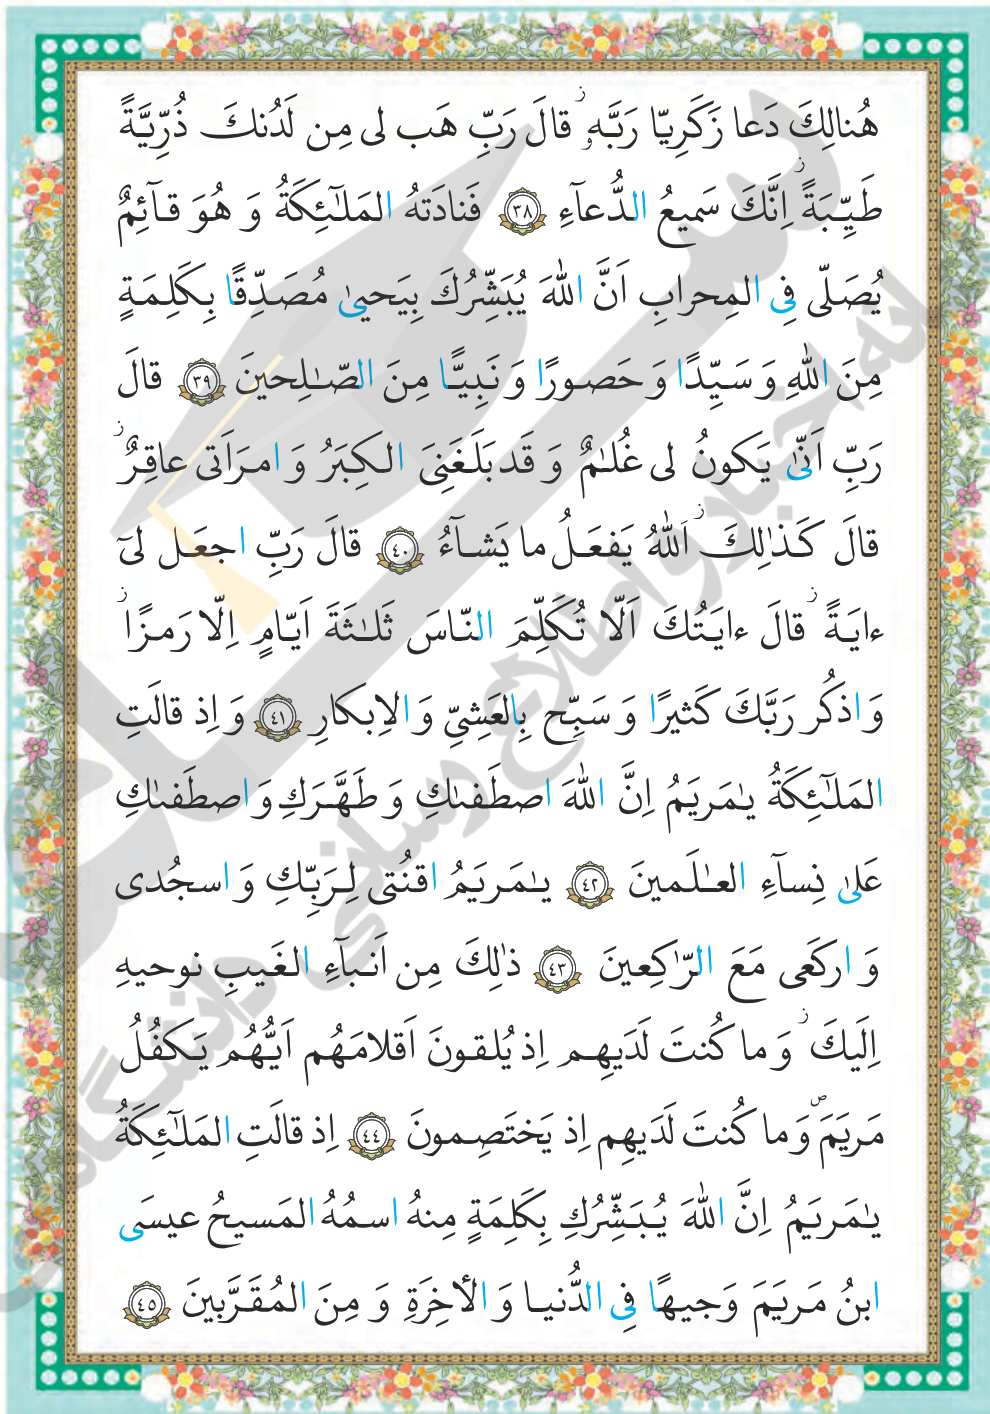 هُنالِكَ دَعا زَكَرِيّا رَبَّهٖ ۚ قالَ رَبِّ هَب لى مِن لَدُنكَ ذُرِّيَّةً
طَيِّبَةً ۖ اِنَّكَ سَميعُ الدُّعآءِ ﴿٣٨﴾ فَنادَتهُ المَلٰٓئِكَةُ وَ هُوَ قآئِمٌ
يُصَلّى فِى المِحرابِ اَنَّ اللّٰهَ يُبَشِّرُكَ بِيَحيىٰ مُصَدِّقًا بِكَلِمَةٍ
مِنَ اللّٰهِ وَ سَيِّدًا وَ حَصورًا وَ نَبِيًّا مِنَ الصّٰلِحينَ ﴿٣٩﴾ قالَ
رَبِّ اَنّىٰ يَكونُ لى غُلٰمٌ وَ قَد بَلَغَنِىَ الكِبَرُ وَ امرَاَتى عاقِرٌ ز
قالَ كَذٰلِكَ ز اَللّٰهُ يَفعَلُ ما يَشآءُ ﴿٤٠﴾ قالَ رَبِّ اجعَل لىٓ
ءايَةً ز قالَ ءايَتُكَ اَلّا تُكَلِّمَ النّاسَ ثَلٰثَةَ اَيّامٍ اِلّا رَمزًا ز
وَ اذكُر رَبَّكَ كَثيرًا وَ سَبِّح بِالعَشِىِّ وَ الاِبكارِ ﴿٤١﴾ وَ اِذ قالَتِ
المَلٰٓئِكَةُ يٰمَريَمُ اِنَّ اللّٰهَ اصطَفىٰكِ وَ طَهَّرَكِ وَ اصطَفىٰكِ
عَلىٰ نِسآءِ العٰلَمينَ ﴿٤٢﴾ يٰمَريَمُ اقنُتى لِرَبِّكِ وَ اسجُدى
وَ اركَعى مَعَ الرّٰكِعينَ ﴿٤٣﴾ ذٰلِكَ مِن اَنبآءِ الغَيبِ نوحيهِ
اِلَيكَ ز وَ ما كُنتَ لَدَيهِم اِذ يُلقونَ اَقلامَهُم اَيُّهُم يَكفُلُ
مَريَمَ ص وَ ما كُنتَ لَدَيهِم اِذ يَختَصِمونَ ﴿٤٤﴾ اِذ قالَتِ المَلٰٓئِكَةُ
يٰمَريَمُ اِنَّ اللّٰهَ يُبَشِّرُكِ بِكَلِمَةٍ مِنهُ اسمُهُ المَسيحُ عيسَى
ابنُ مَريَمَ وَجيهًا فِى الدُّنيا وَ الأخِرَةِ وَ مِنَ المُقَرَّبينَ ﴿٤٥﴾